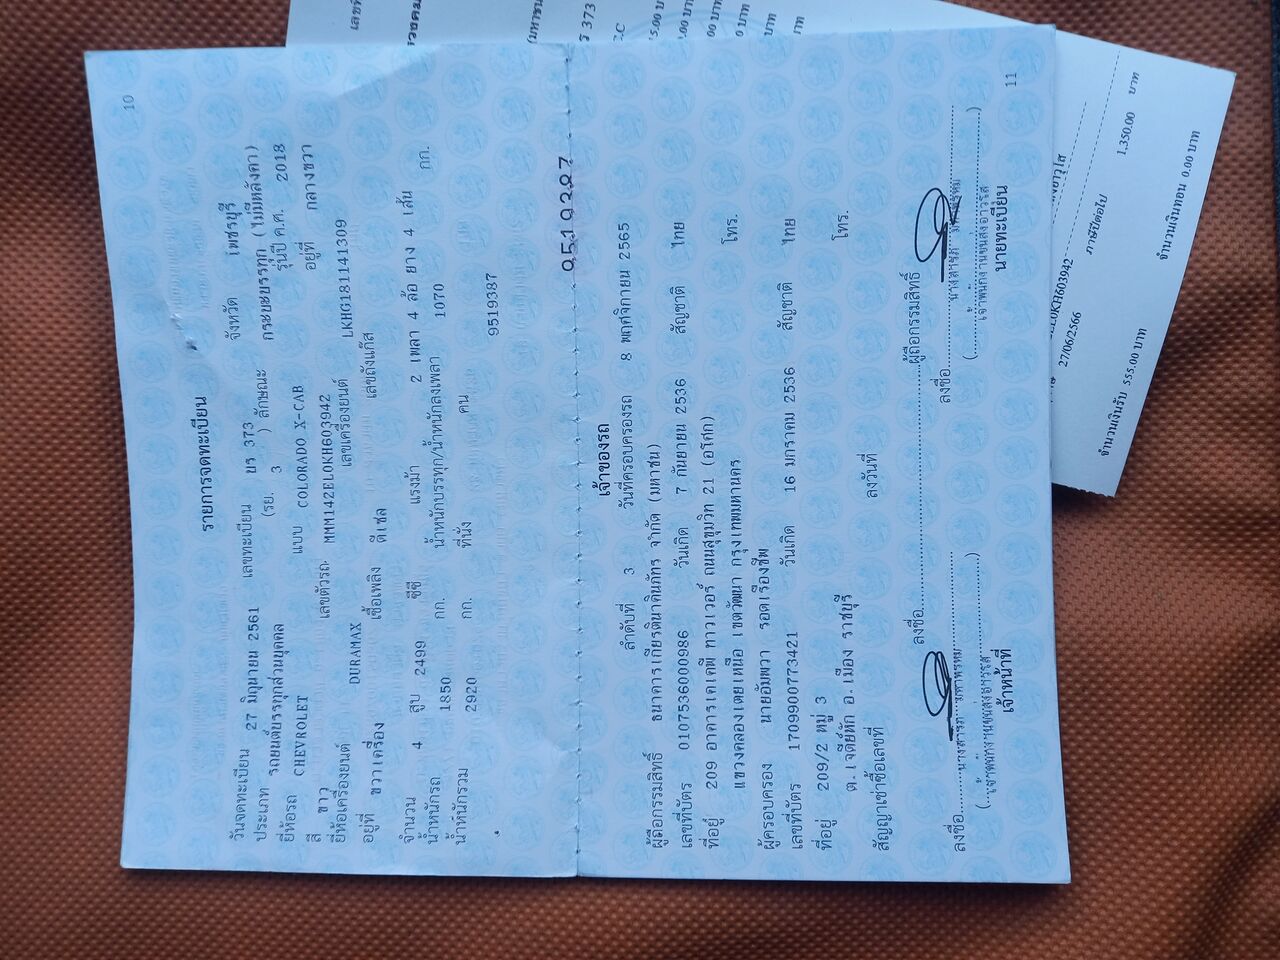 10
รายการจดทะเบียน
วันจดทะเบียน 27 มิถุนายน 2561 เลขทะเบียน บร 373 จังหวัด เพชรบุรี
ประเภท รถยนต์บรรทุกส่วนบุคคล (รย. 3 ) ลักษณะ กระบะบรรทุก (ไม่มีหลังคา)
ยี่ห้อรถ CHEVROLET แบบ COLORADO X-CAB รุ่นปี ค.ศ. 2018
สี ขาว เลขตัวรถ MMM142EL0KH603942 อยู่ที่ กลางขวา
ยี่ห้อเครื่องยนต์ DURAMAX เลขเครื่องยนต์ LKHG181141309
อยู่ที่ ขวาเครื่อง เชื้อเพลิง ดีเซล เลขถังแก๊ส
จำนวน 4 สูบ 2499 ซีซี แรงม้า 2 เพลา 4 ล้อ ยาง 4 เส้น
น้ำหนักรถ 1850 กก. น้ำหนักบรรทุก/น้ำหนักลงเพลา 1070 กก.
น้ำหนักรวม 2920 กก. ที่นั่ง คน
9519387
เจ้าของรถ
ลำดับที่ 3 วันที่ครอบครองรถ 8 พฤศจิกายน 2565
ผู้ถือกรรมสิทธิ์ ธนาคารเกียรตินาคินภัทร จำกัด (มหาชน)
เลขที่บัตร 0107536000986 วันเกิด 7 กันยายน 2536 สัญชาติ ไทย
ที่อยู่ 209 อาคารเคเคพี ทาวเวอร์ ถนนสุขุมวิท 21 (อโศก)
แขวงคลองเตยเหนือ เขตวัฒนา กรุงเทพมหานคร โทร.
ผู้ครอบครอง นายอัมพวา รอดเรืองชีพ
เลขที่บัตร 1709900773421 วันเกิด 16 มกราคม 2536 สัญชาติ ไทย
ที่อยู่ 209/2 หมู่ 3
ต.เจดีย์หัก อ.เมือง ราชบุรี โทร.
สัญญาเช่าซื้อเลขที่ ลงวันที่
ลงชื่อ ผู้ถือกรรมสิทธิ์
ลงชื่อ ลงชื่อ
เจ้าหน้าที่ นายทะเบียน
11
373
27/06/2566
ภาษีปีต่อไป 1,350.00 บาท
จำนวนเงินรับ 555.00 บาท จำนวนเงินทอน 0.00 บาท